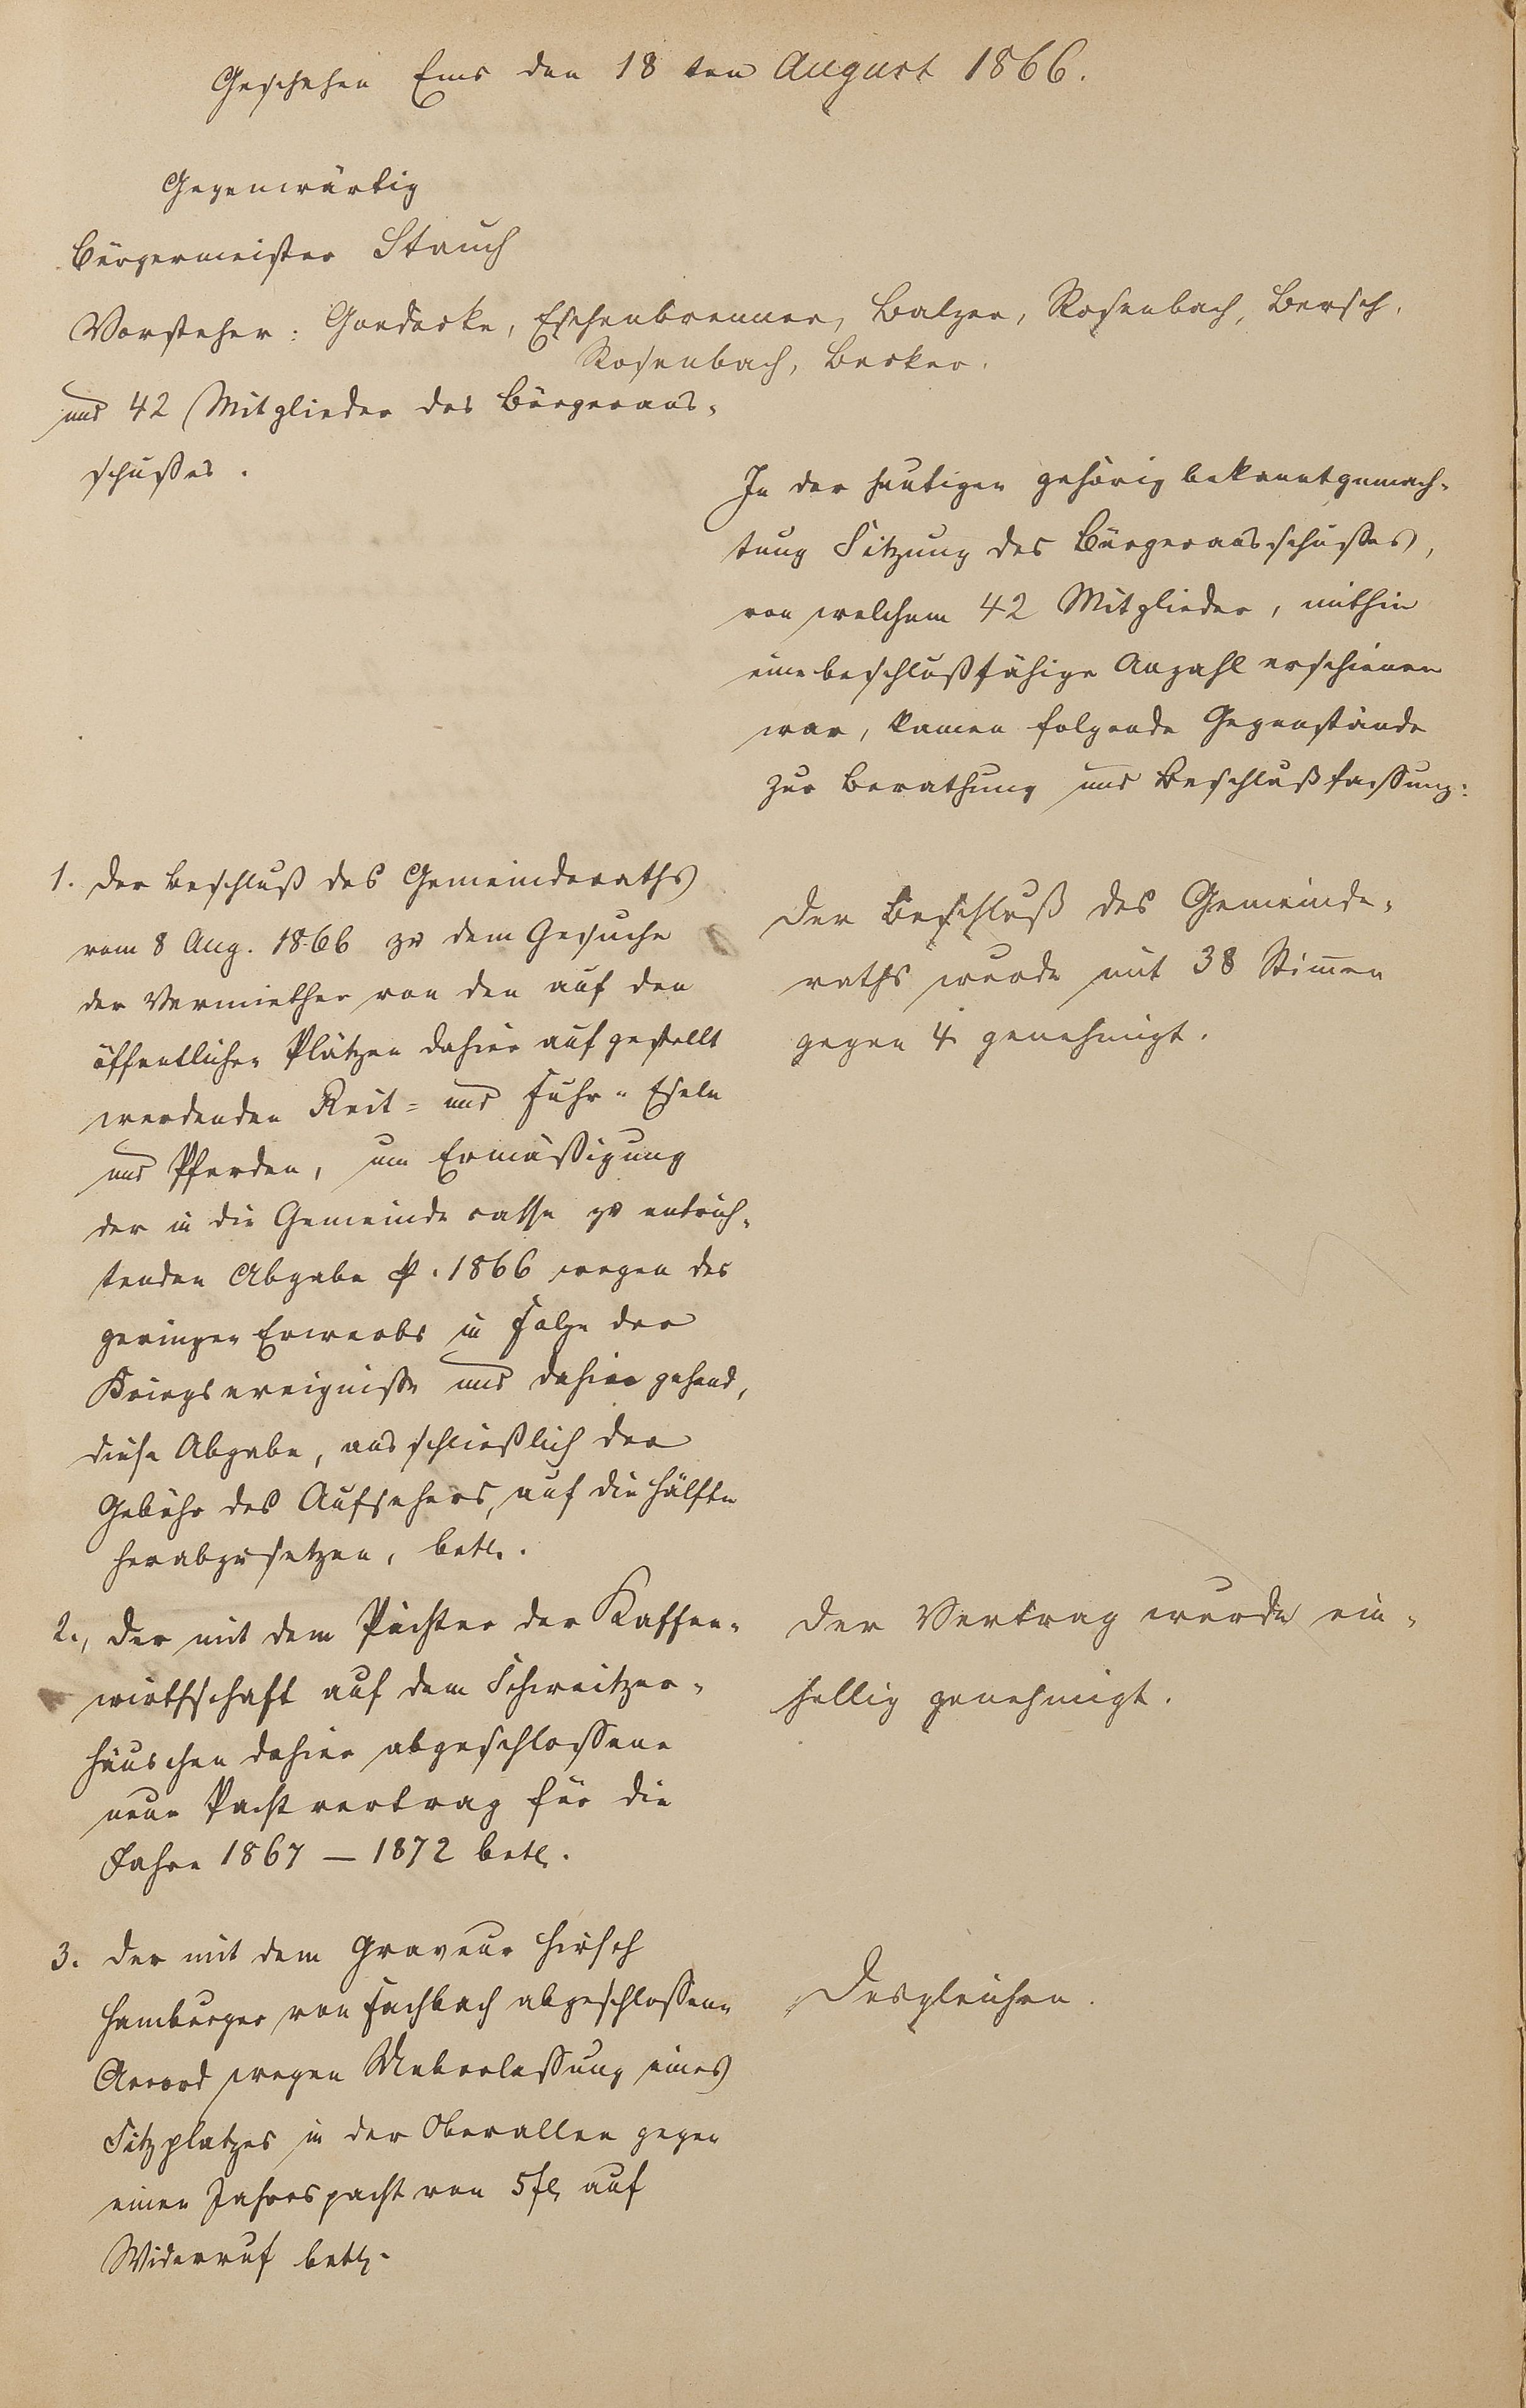 Geschehen Ems den 18 ten August 1866.
Gegenwärtig
Bürgermeister Stauch
Vorsteher: Goedecke, Eschenbrenner, Balzer, Rosenbach, Bersch,
Rosenbach, Becker.
und 42 Mitglieder des Bürgeraus-
schußes.
In der heutigen gehörig bekanntgemach-
tung Sitzung des Bürgerausschußes,
von welchem 42 Mitglieder, mithin
eine beschlußfähige Anzahl erschienen
war, kamen folgende Gegenstände
zur Berathung und Beschlußfassung:
1. Der Beschluß des Gemeinderaths
vom 8 Aug. 1866 zu dem Gesuche
der Vermiether von den auf den
öffentlichen Plätzen dahier aufgestellt
werdenden Reit- und Fuhr- Eseln
und Pferden, um Ermäßigung
der in die Gemeindecasse zu entrich-
tenden Abgabe p. 1866 wegen des
geringen Erwerbs in Folge der
Kriegsereigniße und dahier gehend,
diese Abgabe, ausschließlich der
Gebühr des Aufsehers, auf die Hälfte
herabzusetzen, betr.
Der Beschluß des Gemeinde-
raths wurde mit 38 Stimen
gegen 4 genehmigt.
2., Der mit dem Pächter der Kaffee-
wirthschaft auf dem Schweitzer-
häuschen dahier abgeschlossene
neue Pachtvertrag für die
Jahre 1867 – 1872 betr.
Der Vertrag wurde ein-
hellig genehmigt.
3. Der mit dem Graveur Hirsch
Hamburger von Fachbach abgeschlossene
Accord wegen Ueberlassung eines
Sitzplatzes in der Oberallee gegen
einen Jahrespacht von 5 fl. auf
Widerruf betr.
Desgleichen.